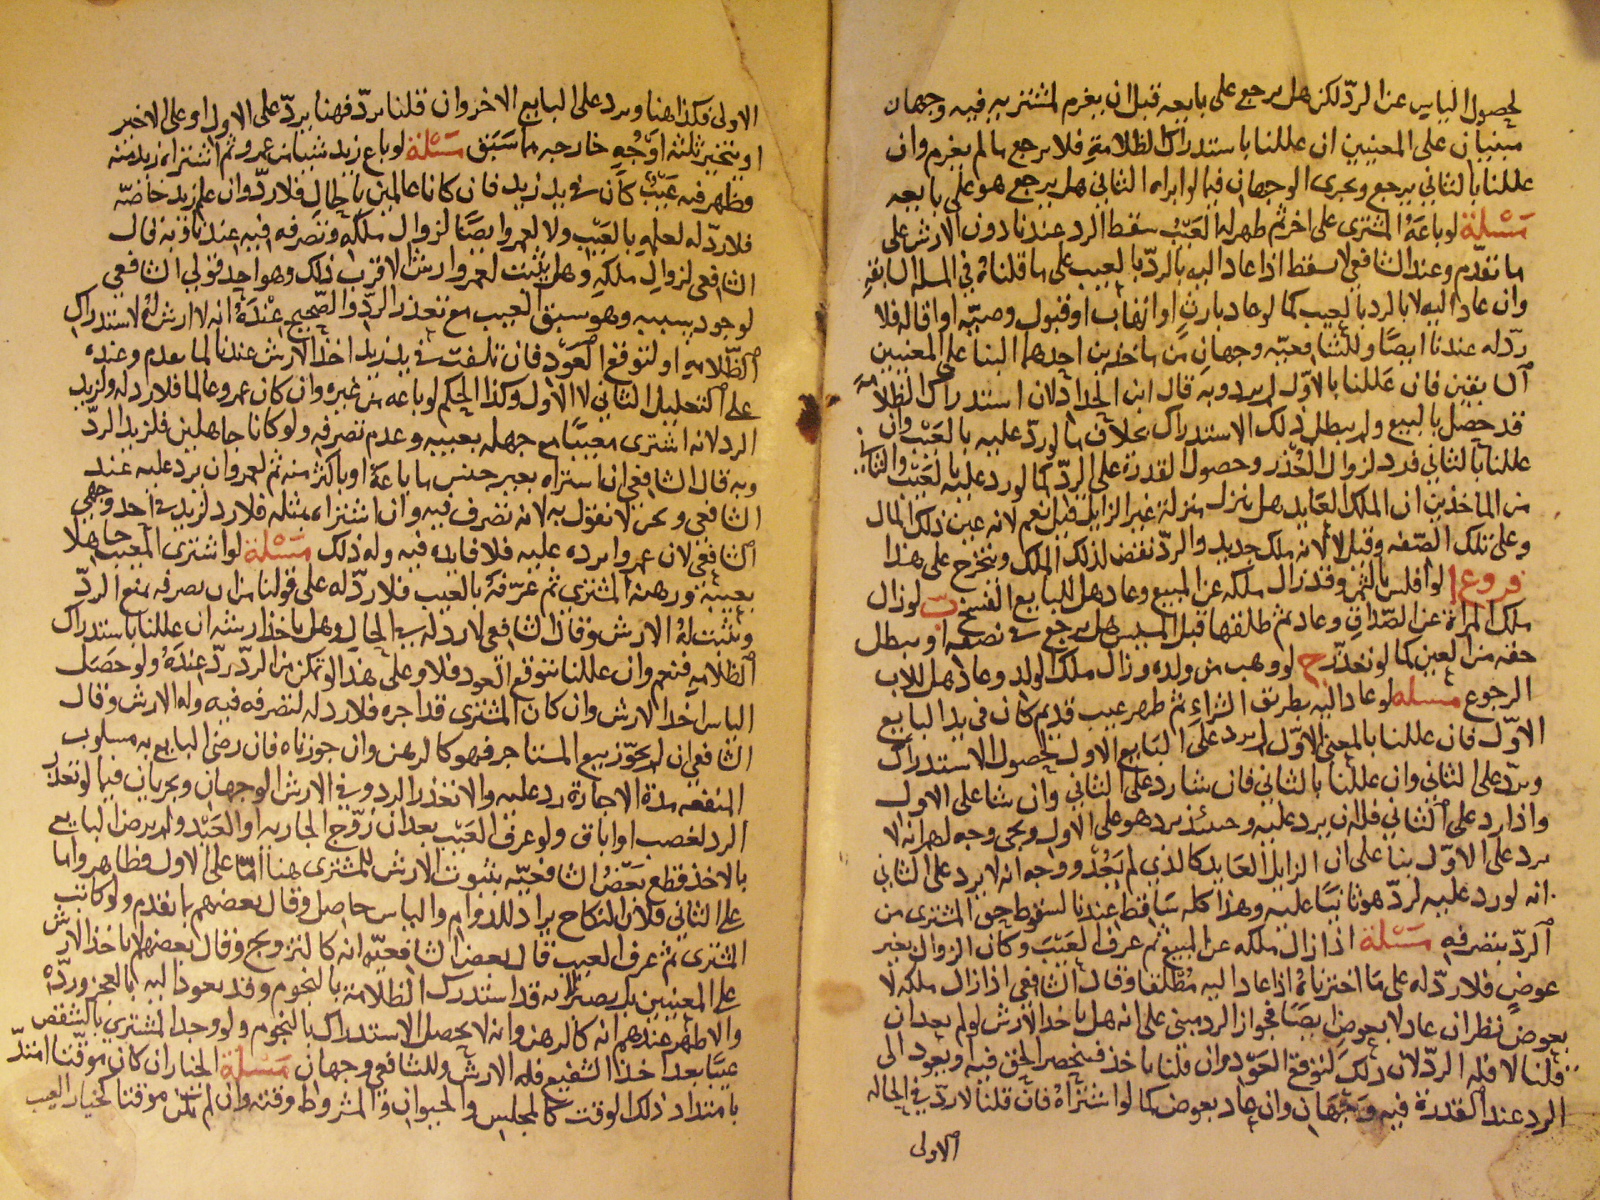 لحصول الياس عن الرد لكن هل يرجع على بايعه قبل ان يغرم لمشتريه فيه وجهان
مبنيان على المعنيين ان عللنا باستدراك الظلامة فلا يرجع ما لم يغرم وان
عللنا بالثاني يرجع ويجرى الوجهان فيما لو ابراه الثاني هل يرجع هو على بايعه
مسئلة لو باعه المشترى على اخر ثم ظهر له العيب سقط الرد عندنا دون الارش على
ما تقدم وعند الشافعي لا يسقط اذا عاد اليه بالرد بالعيب على ما قلناه في المسله السابقه
وان عاد اليه لا بالرد بالعيب كما لو عاد بارث او اتهاب او قبول وصية او اقاله فلا
رد له عندنا ايضا وللشافعيه وجهان من ماخذين احدهما البنا على المعنيين
السابقين فان عللنا بالاول لم يرد وبه قال ابن الحداد لان استدراك الظلامة
قد حصل بالبيع ولم يبطل ذلك الاستدراك بخلاف ما لو رد عليه بالعيب وان
عللنا بالثاني فرد لزوال العذر وحصول القدرة على الرد كما لو رد عليه بالعيب والثاني
من الماخذين ان الملك العايد هل ينزل منزلة غير الزايل قيل نعم لانه عين ذلك المال
وعلى تلك الصفه وقيل لا لانه ملك جديد والرد نقض لذلك الملك ويتخرج على هذا
فروع ا لو افلس بالثمن وقد زال ملكه عن المبيع وعاد هل للبايع الفسخ ب لو زال
ملك المراة عن الصداق وعاد ثم طلقها قبل المسيس هل يرجع في نصفه او يبطل
حقه من العين كما لو تعذر ج لو وهب من ولده وزال ملك الولد وعاد هل للاب
الرجوع مسله لو عاد اليه بطريق الشراء ثم ظهر عيب قديم كان في يد البايع
الاول فان عللنا بالمعنى الاول لم يرد على البايع الاول لحصول الاستدراك
ويرد على الثاني وان عللنا بالثاني فان شا رد على الثاني وان شا على الاول
واذا رد على الثاني فله ان يرد عليه وحينئذ يرد هو على الاول ويجى وجه لهم انه لا
يرد على الاول بنا على ان الزايل العايد كالذي لم يعد ووجه انه لا يرد على الثاني
انه لو رد عليه لرد هو ثانيا عليه وهذا كله ساقط عندنا لسقوط حق المشترى من
الرد بتصرفه مسئلة اذا زال ملكه عن المبيع ثم عرف العيب وكان الزوال بغير
عوض فلا رد له على ما اخترناه اذا عاد اليه مطلقا وقال الشافعي اذا زال ملكه لا
بعوض نظر ان عاد لا بعوض ايضا فجواز الرد مبنى على انه هل ياخذ الارش لو لم يعد ان
قلنا لا فله الرد لان ذلك لتوقع العود وان قلنا ياخذ فينحصر الحق فيه او يعود الى
الرد عند القدرة فيه وجهان وان عاد بعوض كما لو اشتراه فان قلنا لا رد في الحاله
الاولى
الاولى فكذا هنا ويرد على البايع الاخر وان قلنا يرد فهنا يرد على الاول او على الاخير
او يتخير ثلثة اوجه خارجه مما سبق مسئلة لو باع زيد شيا من عمرو ثم اشتراه زيد منه
وظهر فيه عيب كان في يد زيد فان كانا عالمين بالحال فلا رد وان علم زيد خاصة
فلا رد له لعلمه بالعيب ولا لعمرو ايضا لزوال ملكه وتصرفه فيه عندنا وبه قال
الشافعي لزوال ملكه وهل يثبت لعمرو ارش الاقرب ذلك وهو احد قولي الشافعي
لوجود سببه وهو سبق العيب مع تعذر الرد والصحيح عنده انه لا ارش له لاستدراك
الظلامه او لتوقع العود فان تلفت في يد زيد اخذ الارش عندنا لما تقدم وعنده
على التعليل الثاني لا الاول وكذا الحكم لو باعه من غيره وان كان عمرو عالما فلا رد له ولزيد
الرد لانه اشترى معيبا مع جهله بعيبه وعدم تصرفه ولو كانا جاهلين فلزيد الرد
وبه قال الشافعي ان اشتراه بغير جنس ما باعه او باكثر منه ثم لعمرو ان يرد عليه عند
الشافعي ونحن لا نقول به لانه تصرف فيه وان اشتراه بمثله فلا رد لزيد في احد وجهي
الشافعي لان عمروا يرده عليه فلا فايده فيه وله ذلك مسئلة لو اشترى المعيب جاهلا
بعيبه ورهنه المشترى ثم عرفه بالعيب فلا رد له على قولنا من ان تصرفه يمنع الرد
ويثبت له الارش وقال الشافعي لا رد له في الحال وهل ياخذ ارشه ان عللنا باستدراك
الظلامه فنعم وان عللنا بتوقع العود فلا وعلى هذا لو تمكن من الرد رد عنده ولو حصل
الياس اخذ الارش وان كان المشترى قد اجره فلا رد له لتصرفه فيه وله الارش وقال
الشافعي ان لم يجوز بيع المستاجر فهو كالرهن وان جوزناه فان رضى البايع به مسلوب
المنفعه مدة الاجارة رد عليه والا تعذر الرد وفي الارش الوجهان ويجريان فيما لو تعذر
الرد لغصب او اباق ولو عرف العيب بعد ان زوج الجاريه او العبد ولم يرض البايع
بالاخذ قطع بعض الشافعيه بثبوت الارش للمشترى هنا اما على الاول فظاهر واما
على الثاني فلان النكاح يراد للدوام والياس حاصل وقال بعضهم ما تقدم ولو كاتب
المشترى ثم عرف العيب قال بعض الشافعيه انه كالتزويج وقال بعضهم لا ياخذ الارش
على المعنيين بل يصبر لانه قد استدرك الظلامة بالنجوم وقد يعود اليه بالعجز ورده
والاظهر عندهم انه كالرهن وانه لا يحصل الاستدراك بالنجوم ولو وجد المشتري بالشقص
عيبا بعد اخذ الشفيع فله الارش وللشافعي وجهان مسئلة الخيار ان كان موقتا امتد
بامتداد ذلك الوقت كالمجلس والحيوان والمشروط وقته وان لم يكن موقتا كخيار العيب